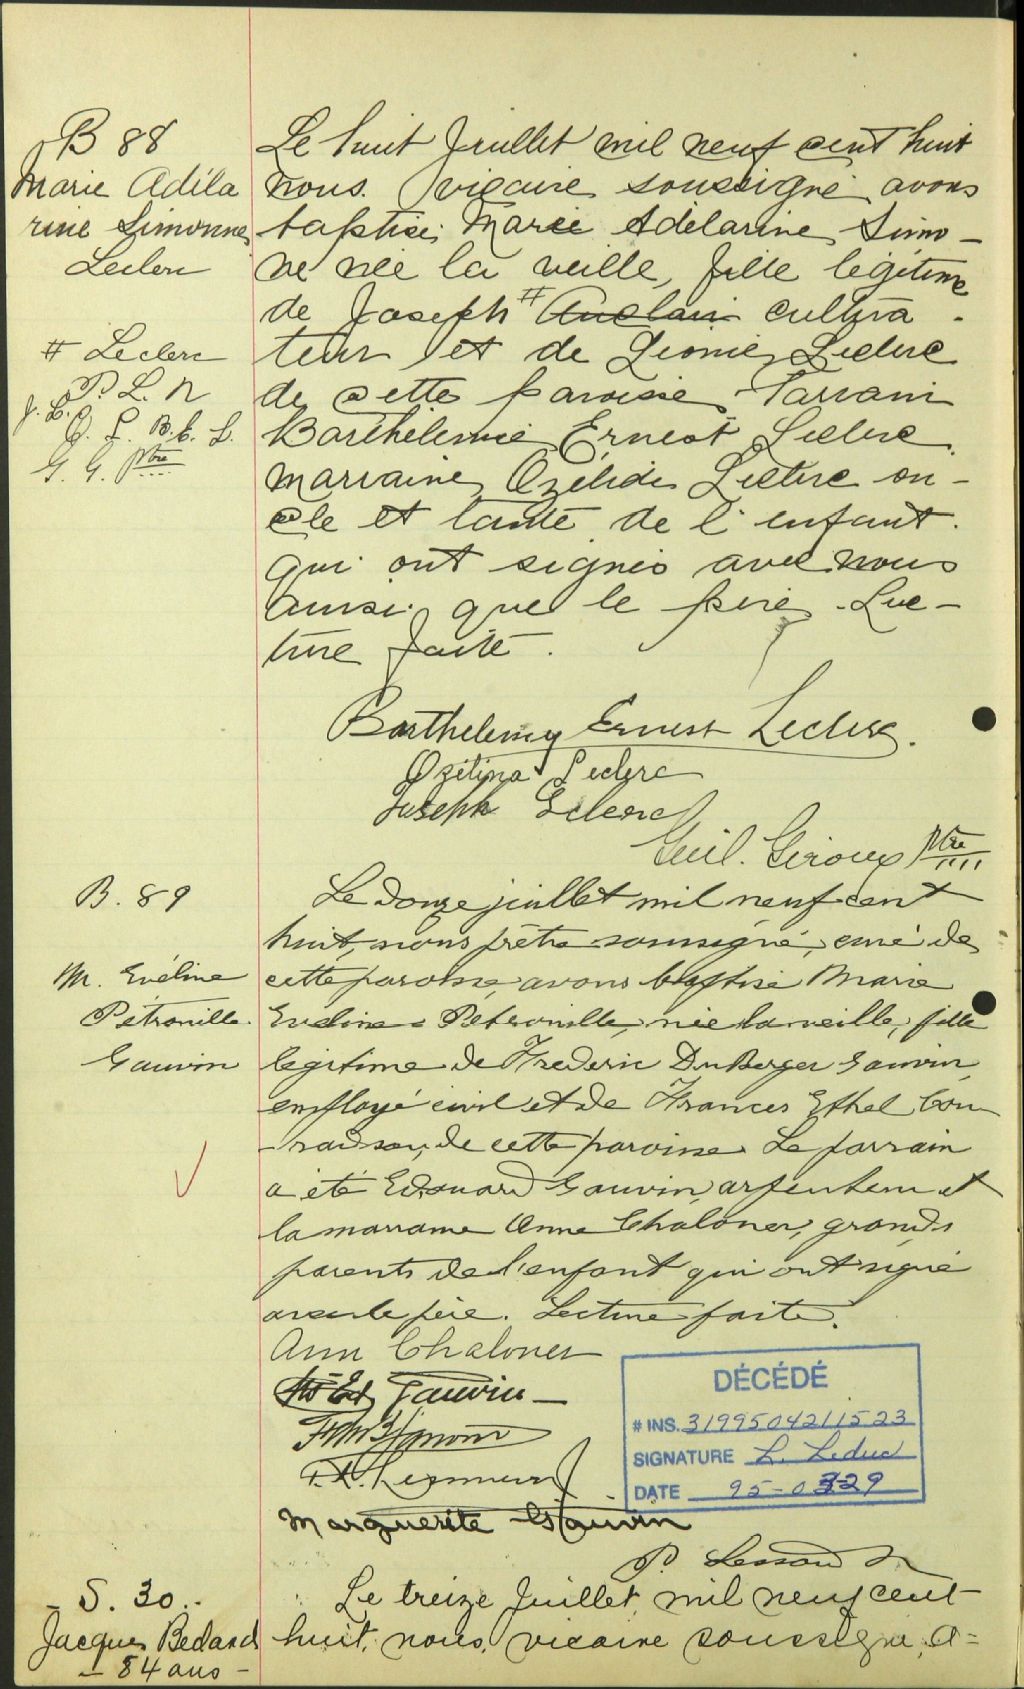 B 88
Marie Adéla
rine Simonne
Leclerc
# Leclerc
P. L. N
J. L.
O. L. B. E. L.
G. G. Ptre
Le huit Juillet mil neuf cent huit
nous vicaire soussigné avons
baptisé Marie Adélarine Simo-
ne née la veille, fille légitime
de Joseph # Auclair cultiva-
teur et de Léonie Leclerc
de cette paroisse Parrain
Barthélemie Ernest Leclerc
marraine Ozélide Leclerc on-
cle et tante de l'enfant
qui ont signés avec nous
ainsi que le père. Lec-
ture faite.
Barthelemy Ernest Leclerc.
Ozélina Leclerc
Joseph Leclerc
Guil. Giroux Ptre
B. 89
M. Evéline
Pétronille
Gauvin
Le douze juillet mil neuf cent
huit, nous prêtre soussigné, curé de
cette paroisse, avons baptisé Marie
Eveline Pétronille, née la veille, fille
légitime de Frederic DuBerger Gauvin,
employé civil et de Frances Ethel Con
radson, de cette paroisse. Le parrain
a été Edouard Gauvin, arpenteur et
la marraine Anne Chaloner, grands
parents de l'enfant qui ont signé
avec le père. Lecture faite.
Ann Chaloner
Gauvin
Marguerite Gauvin
DÉCÉDÉ
# INS. 3199504211523
SIGNATURE L. Leduc
DATE 95-03-29
P. Lessard
S. 30.
Jacques Bedard
- 84 ans -
Le treize Juillet mil neuf cent
huit, nous, vicaire soussigné, a=